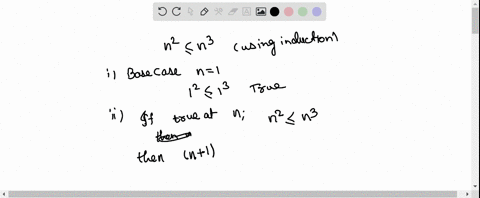 n² ≤ n³ (using induction)
i) Base Case n=1
1² ≤ 1³ True
ii) If true at n; n² ≤ n³
then (n+1)